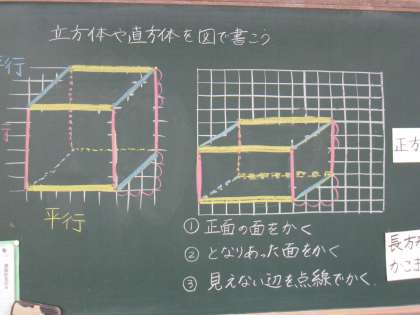 立方体や直方体を図で書こう
平行
行
平行
正方
① 正面の面をかく
② となりあった面をかく
③ 見えない辺を点線でかく
長方
かこま